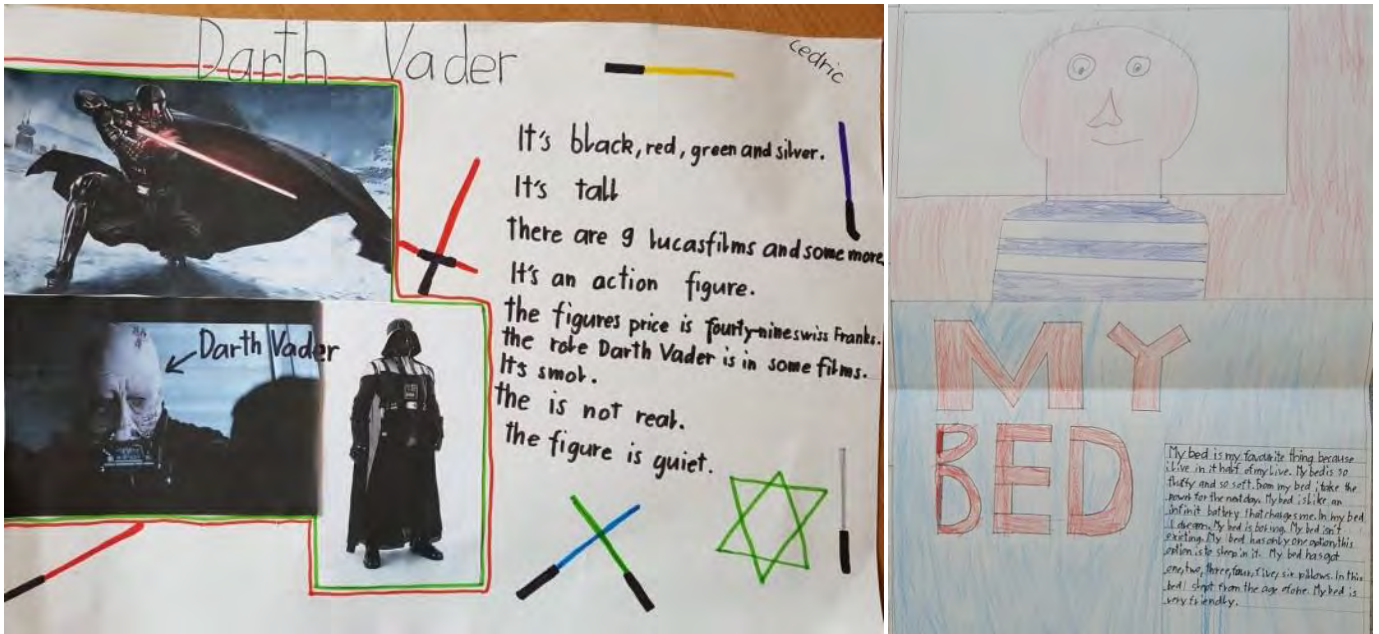 Darth Vader
cedric
It's black, red, green and silver.
It's tall
there are 9 lucasfilms and some more
It's an action figure.
the figures price is fourty-nine swiss Franks.
the role Darth Vader is in some films.
It's smol.
the is not real.
the figure is quiet.
Darth Vader
MY
BED
My bed is my favourite thing because
i live in it half of my live. My bed is so
fluffy and so soft. From my bed i take the
power for the next day. My bed is like an
infinit battery that charges me. In my bed
I dream. My bed is boring. My bed isn't
exiting. My bed has only one option, this
option is to sleep in it. My bed has got
one, two, three, four, five, six pillows. In this
bed i slept from the age of one. My bed is
very friendly.